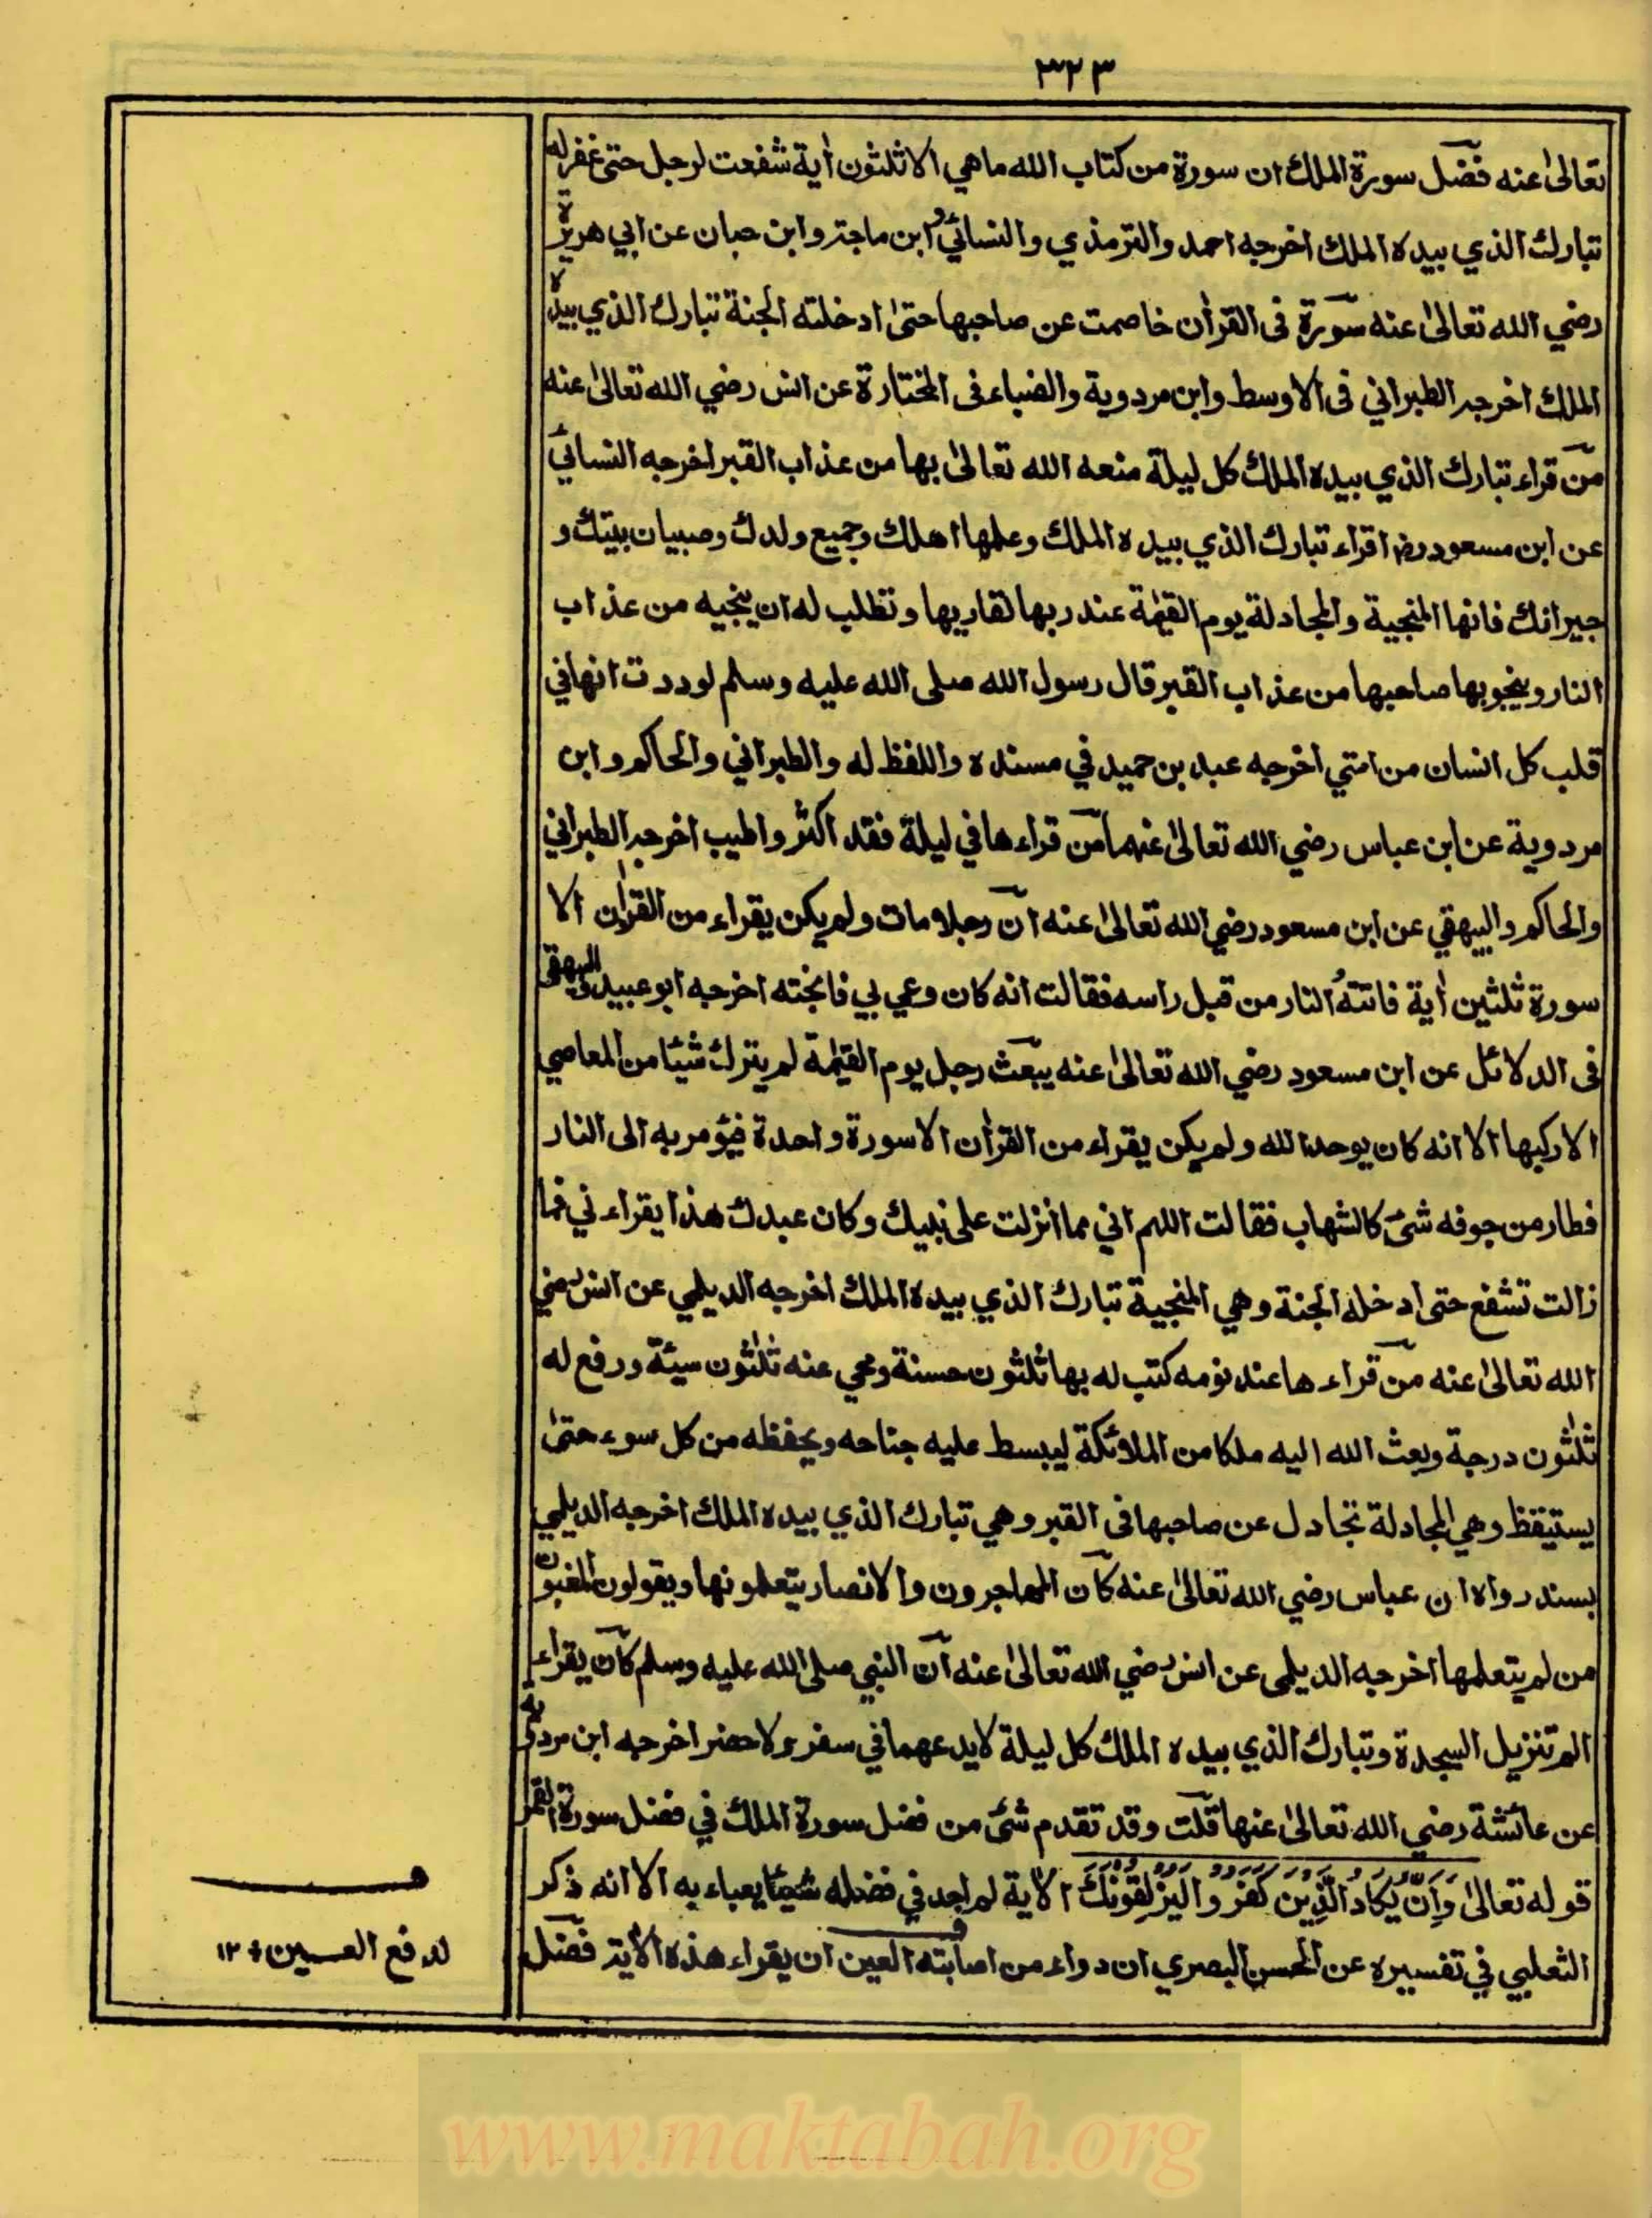 ٣٢٣
تعالىٰ عنه فضل سورة الملك ان سورة من كتاب الله ماهي الا ثلثون اٰية شفعت لرجل حتى غفر له
تبارك الذي بيده الملك اخرجه احمد والترمذي والنسائي و ابن ماجة وابن حبان عن ابي هريرة
رضي الله تعالىٰ عنه سورة فى القراٰن خاصمت عن صاحبها حتىٰ ادخلته الجنة تبارك الذي بيده
الملك اخرجه الطبراني فى الاوسط وابن مردوية والضياء فى المختارة عن انس رضي الله تعالىٰ عنه
من قراء تبارك الذي بيده الملك كل ليلة منعه الله تعالىٰ بها من عذاب القبر اخرجه النسائي
عن ابن مسعود رض اقراء تبارك الذي بيده الملك وعلمها اهلك وجميع ولدك وصبيان بيتك و
جيرانك فانها المنجية والمجادلة يوم القيٰمة عند ربها لقاريها وتطلب له ان ينجيه من عذاب
النار وينجو بها صاحبها من عذاب القبر قال رسول الله صلى الله عليه وسلم لوددت انها في
قلب كل انسان من امتي اخرجه عبد بن حميد في مسنده واللفظ له والطبراني والحاكم وابن
مردوية عن ابن عباس رضي الله تعالىٰ عنهما من قراءها في ليلة فقد اكثر واطيب اخرجه الطبراني
والحاكم والبيهقي عن ابن مسعود رضي الله تعالىٰ عنه ان رجلا مات ولم يكن يقراء من القراٰن الا
سورة ثلثين اٰية فاتته النار من قبل راسه فقالت انه كان وعي بي فانجته اخرجه ابو عبيد والبيهقي
فى الدلائل عن ابن مسعود رضي الله تعالىٰ عنه يبعث رجل يوم القيٰمة لم يترك شيئا من المعاصي
الا ركبها الا انه كان يوحد الله ولم يكن يقراء من القراٰن الا سورة واحدة فيؤمر به الى النار
فطار من جوفه شئ كالشهاب فقالت اللهم اني مما انزلت على نبيك وكان عبدك هذا يقراءني فما
زالت تشفع حتى ادخله الجنة وهي المنجية تبارك الذي بيده الملك اخرجه الديلمي عن انس رضي
الله تعالىٰ عنه من قراءها عند نومه كتب له بها ثلثون حسنة ومحي عنه ثلٰثون سيئة ورفع له
ثلٰثون درجة وبعث الله اليه ملكا من الملائكة ليبسط عليه جناحه ويحفظه من كل سوء حتىٰ
يستيقظ وهي المجادلة تجادل عن صاحبها فى القبر وهي تبارك الذي بيده الملك اخرجه الديلمي
بسند رواه ان عباس رضي الله تعالىٰ عنه كان المهاجرون والانصار يتعلمونها ويقولون المغبون
من لم يتعلمها اخرجه الديلمى عن انس رضي الله تعالىٰ عنه ان النبي صلى الله عليه وسلم كان يقراء
الم تنزيل السجدة وتبارك الذي بيده الملك كل ليلة لا يدعهما في سفر ولا حضر اخرجه ابن مردوية
عن عائشة رضي الله تعالىٰ عنها قلت وقد تقدم شئ من فضل سورة الملك في فضل سورة القمر
قوله تعالىٰ وَاِنْ يَّكَادُ الَّذِيْنَ كَفَرُوْا لَيُزْلِقُوْنَكَ الاٰية لم اجد في فضله شيئا يعباء به الا انه ذكر
الثعلبي في تفسيره عن الحسن البصري ان دواء من اصابته العين ان يقراء هذه الاٰية فضل
لدفع العين ١٢
www.maktabah.org